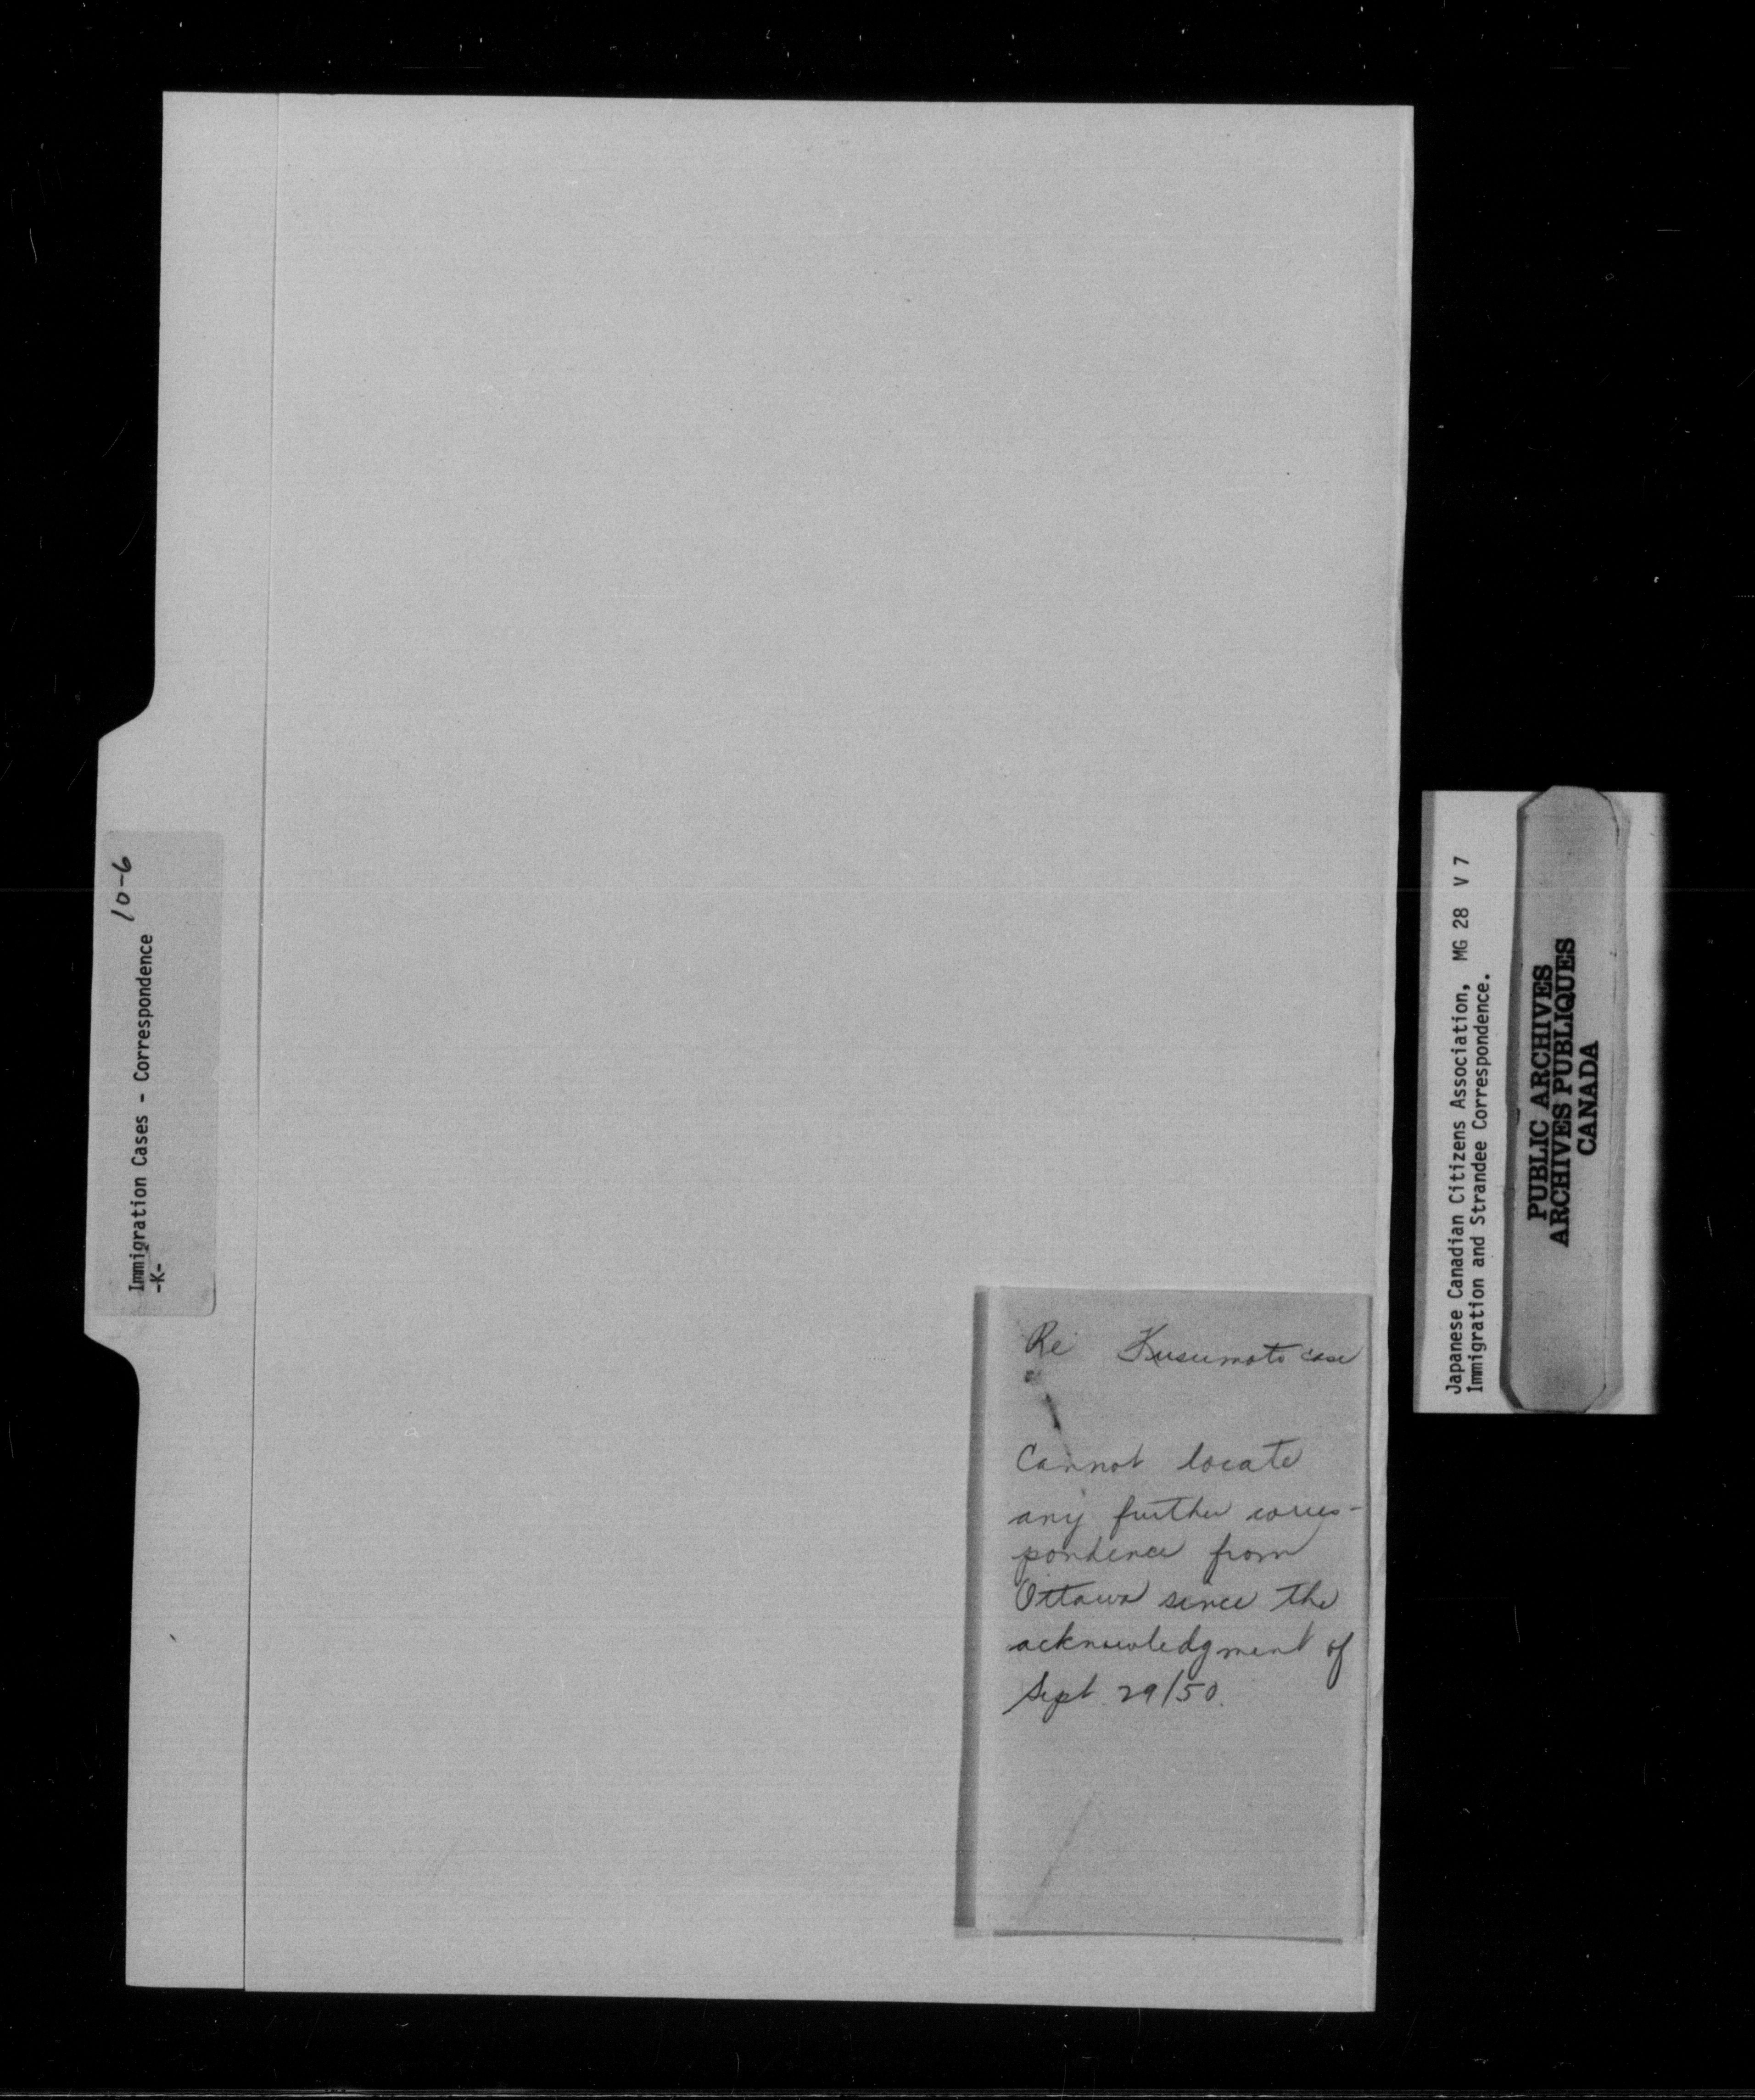 Immigration Cases - Correspondence 10-6
-K-
Re Kusumoto case
Cannot locate
any further corres-
pondence from
Ottawa since the
acknowledgment of
Sept. 29/50.
Japanese Canadian Citizens Association, MG 28 V 7
Immigration and Strandee Correspondence.
PUBLIC ARCHIVES
ARCHIVES PUBLIQUES
CANADA